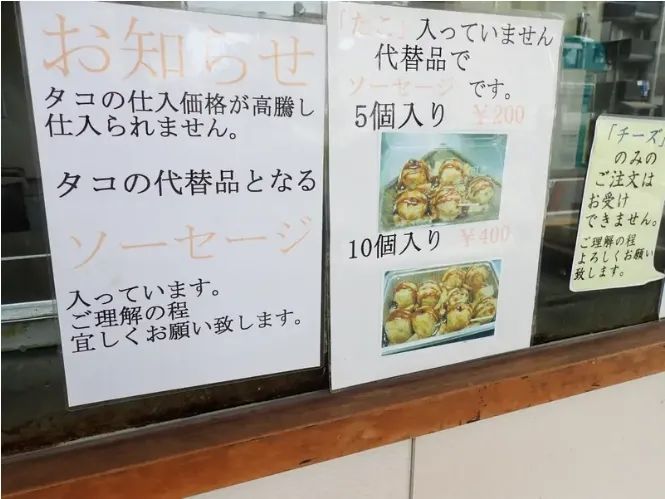 お知らせ
タコの仕入価格が高騰し
仕入られません。
タコの代替品となる
ソーセージ
入っています。
ご理解の程
宜しくお願い致します。
「たこ」入っていません
代替品で
ソーセージ です。
5個入り ￥200
10個入り ￥400
「チーズ」
のみの
ご注文は
お受け
できません。
ご理解の程
よろしくお願い
致します。